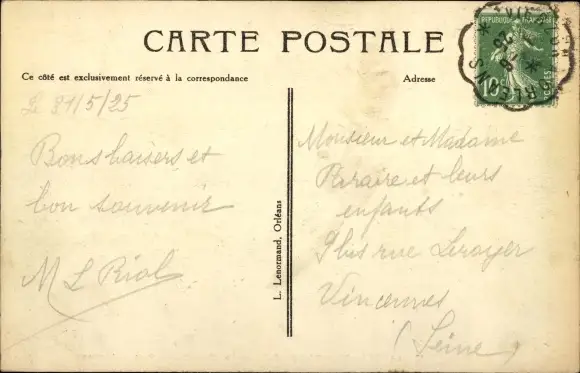 CARTE POSTALE
Ce côté est exclusivement réservé à la correspondance
Adresse
REPUBLIQUE FRANÇAISE
10
POSTES
ORLEANS
25
L 31/5/25
Bons baisers et
bon souvenir
M L Rial
L. Lenormand, Orléans
Monsieur et Madame
et leurs
enfants
bis rue Leroyer
Vincennes
(Seine)